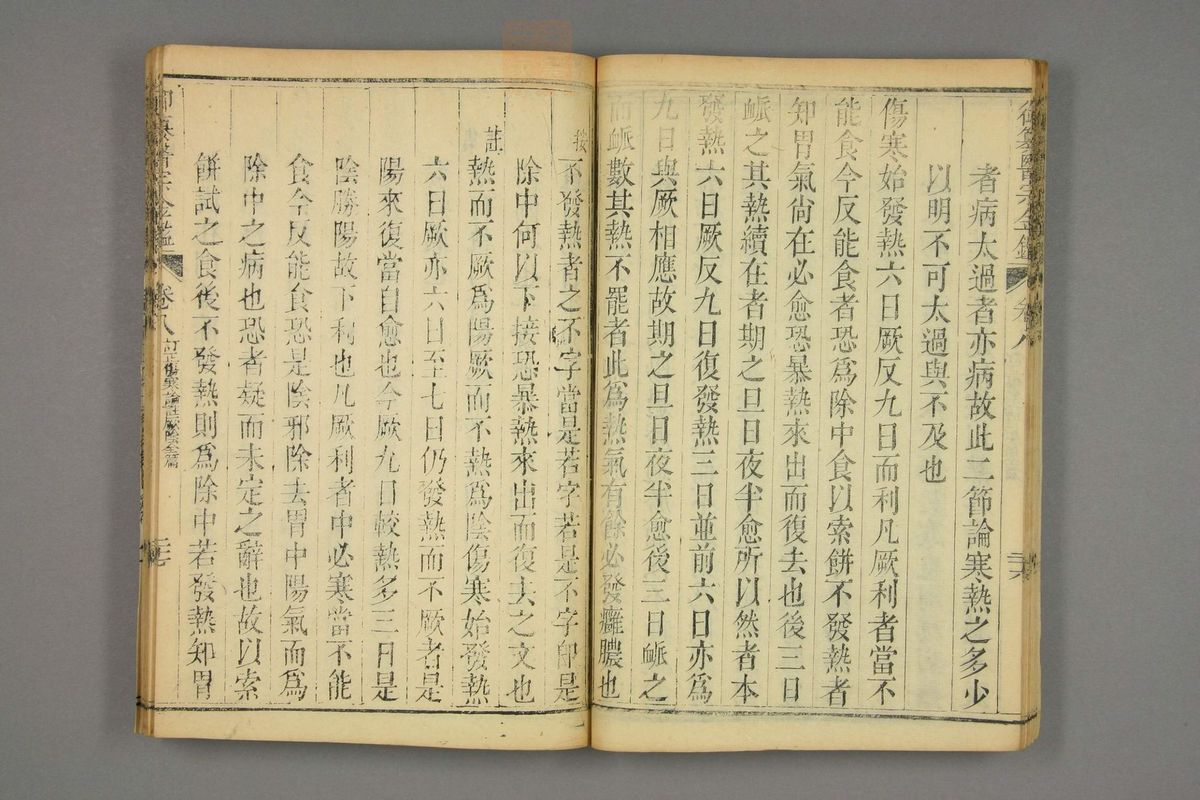 御纂醫宗金鑑
卷八
二六
者病太過者亦病故此二節論寒熱之多少
以明不可太過與不及也
傷寒始發熱六日厥反九日而利凡厥利者當不
能食今反能食者恐爲除中食以索餅不發熱者
知胃氣尚在必愈恐暴熱來出而復去也後三日
脈之其熱續在者期之旦日夜半愈所以然者本
發熱六日厥反九日復發熱三日並前六日亦爲
九日與厥相應故期之旦日夜半愈後三日脈之
而脈數其熱不罷者此爲熱氣有餘必發癰膿也
按不發熱者之不字當是若字若是不字卽是
除中何以下接恐暴熱來出而復去之文也
註熱而不厥爲陽厥而不熱爲陰傷寒始發熱
六日厥亦六日至七日仍發熱而不厥者是
陽來復當自愈也今厥九日較熱多三日是
陰勝陽故下利也凡厥利者中必寒當不能
食今反能食恐是陰邪除去胃中陽氣而爲
除中之病也恐者疑而未定之辭也故以索
餅試之食後不發熱則爲除中若發熱知胃
御纂醫宗金鑑
卷八
訂正傷寒論註厥陰全篇
二七